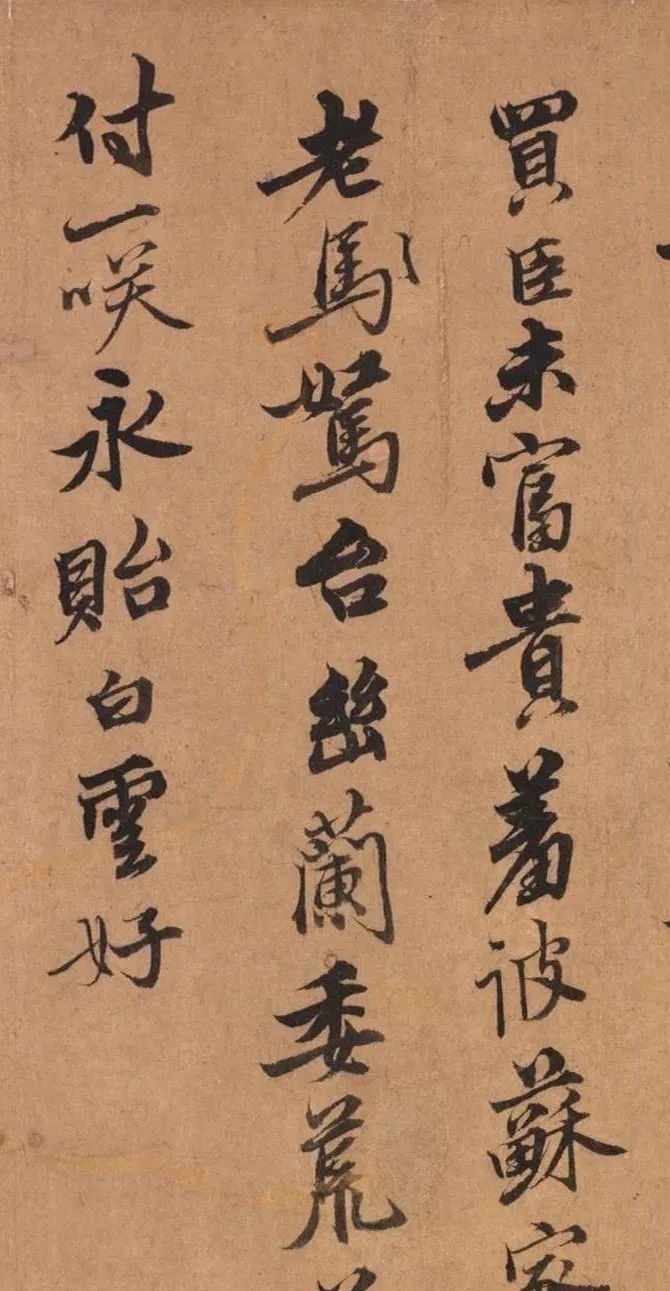 買臣未富貴羞彼蘇家
老馬駑台幽蘭委荒
付一咲永貽白雲好